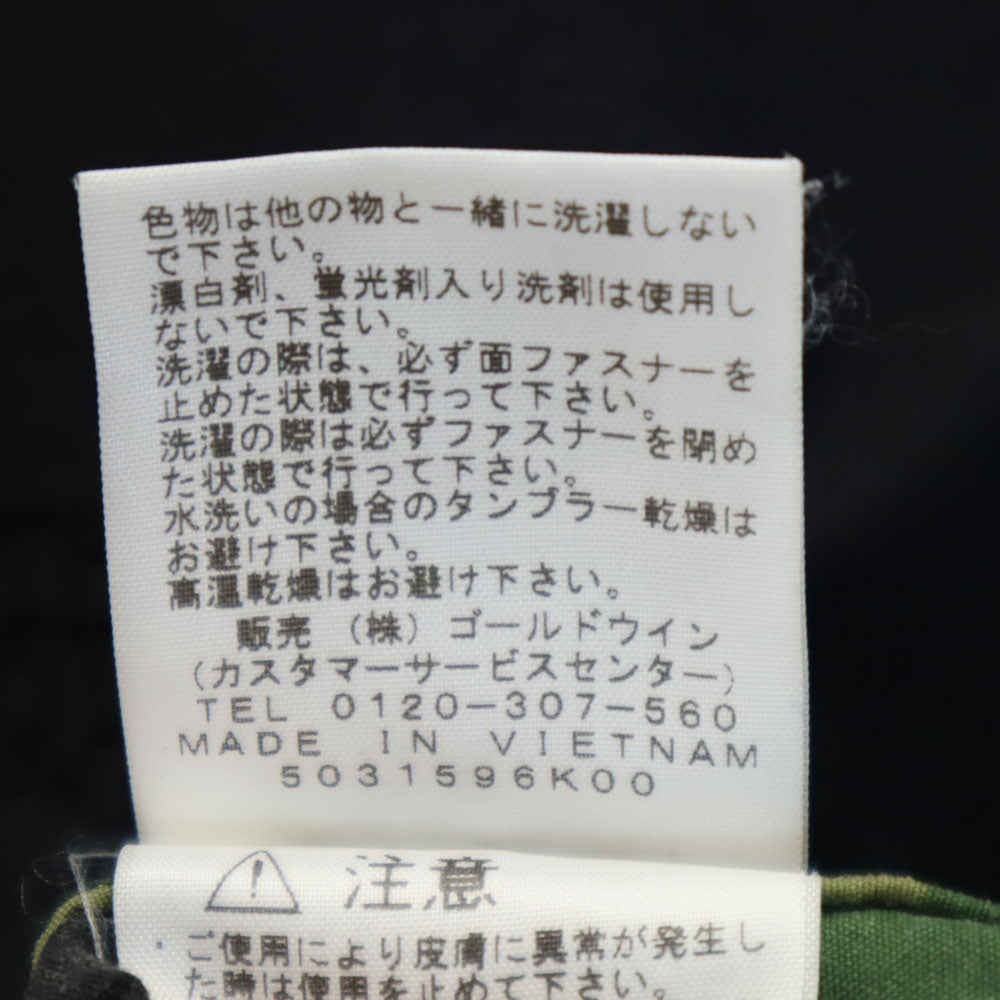 色物は他の物と一緒に洗濯しない
で下さい。
漂白剤、蛍光剤入り洗剤は使用し
ないで下さい。
洗濯の際は、必ず面ファスナーを
止めた状態で行って下さい。
洗濯の際は必ずファスナーを閉め
た状態で行って下さい。
水洗いの場合のタンブラー乾燥は
お避け下さい。
高温乾燥はお避け下さい。
販売 (株) ゴールドウイン
(カスタマーサービスセンター)
TEL 0120-307-560
MADE IN VIETNAM
5031596K00
注意
ご使用により皮膚に異常が発生し
た時は使用を止めて下さい。